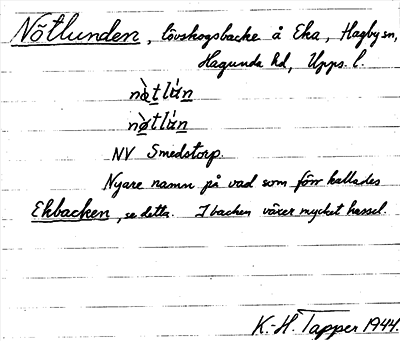 Nötlunden, lövskogsbacke å Eka, Hagby sn,
Hagunda hd, Upps. l.
nø̀tlún
nø̀tlún
NV Smedstorp.
Nyare namn på vad som förr kallades
Ekbacken, se detta. I backen växer mycket hassel.
K.-H. Tapper 1944.